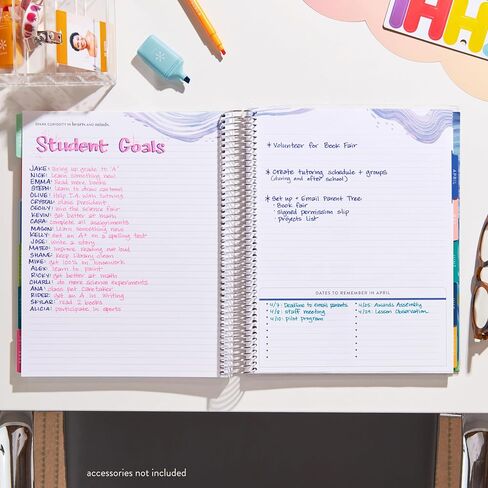 SPARK CURIOSITY IN hearts AND minds.
Student Goals
JAKE: Bring up grade to "A"
NICK: Learn something new
EMMA: Read more books
STEPH: Learn to draw cartoons
OLIVE: Help T.A. with tutoring
CRYSTAL: class president
CECILY: Join the science fair
KEVIN: get better at math
CARA: complete all assignments
MASON: Learn something new
KELLY: get an A+ on a spelling test
JOSE: write a story
MATEO: improve reading out loud
SHANE: Keep library clean
MIKE: get 100% on homework
ALEX: learn to paint
RICKY: get better at math
CHARLI: do more science experiments
ANA: class pet caretaker
RIDER: get an A in writing
SKYLAR: read 2 books
ALICIA: participate in sports
* Volunteer for Book Fair
* Create tutoring schedule + groups
(during and after school)
* Set up + Email Parent Tree:
· Book fair
· Signed permission slip
· Projects list
DATES TO REMEMBER IN APRIL
• 4/7: Deadline to email parents
• 4/8: Staff meeting
• 4/10: Pilot program
• 4/25: Awards Assembly
• 4/29: Lesson Observation
APRIL
accessories not included